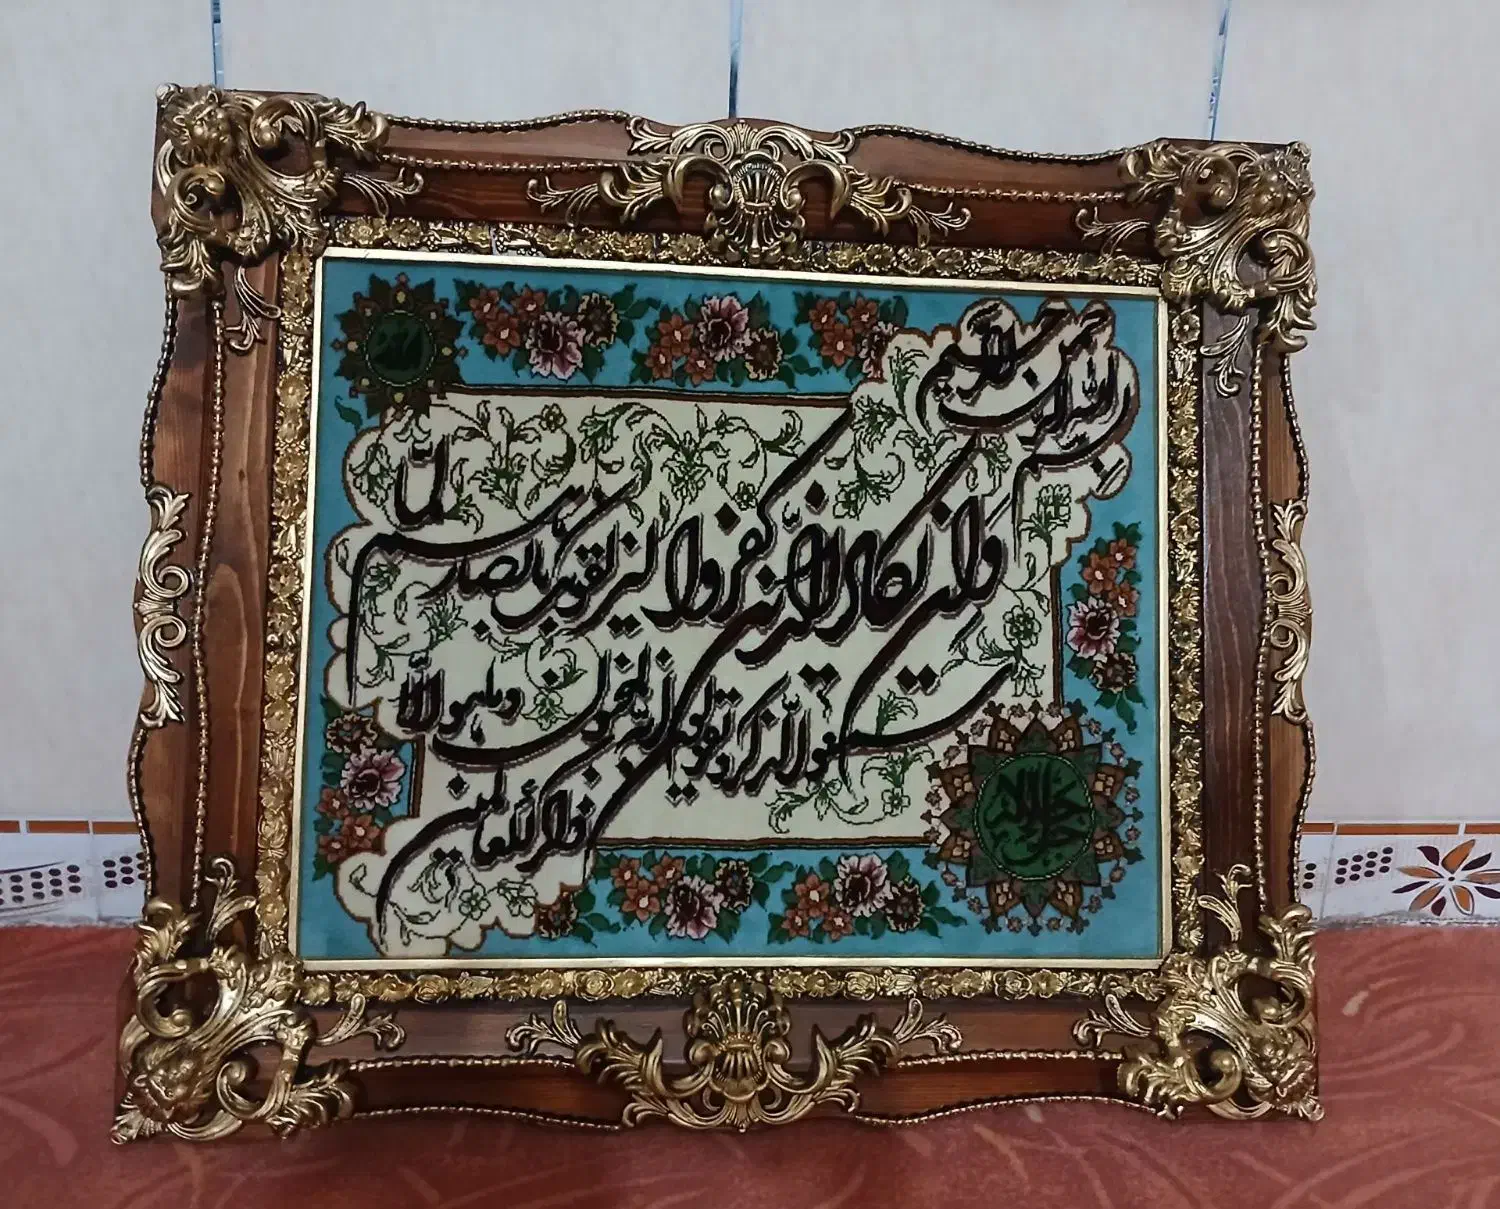 بسم الله الرحمن الرحیم
وَاِن یَکادُ الَّذینَ کَفَروا لَیُزلِقونَکَ بِاَبصارِهِم لَمّا
سَمِعوا الذِّکرَ وَ یَقولونَ اِنَّهُ لَمَجنونٌ وَما هُوَ اِلّا
ذِکرٌ لِلعالَمین
جل جلاله